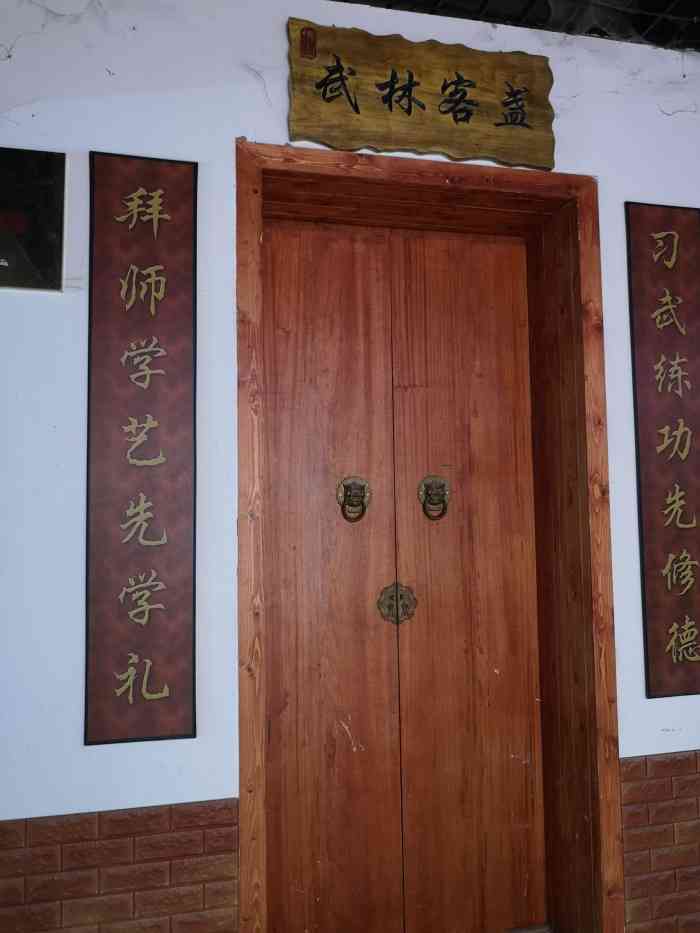 武林客盏
拜师学艺先学礼
习武练功先修德